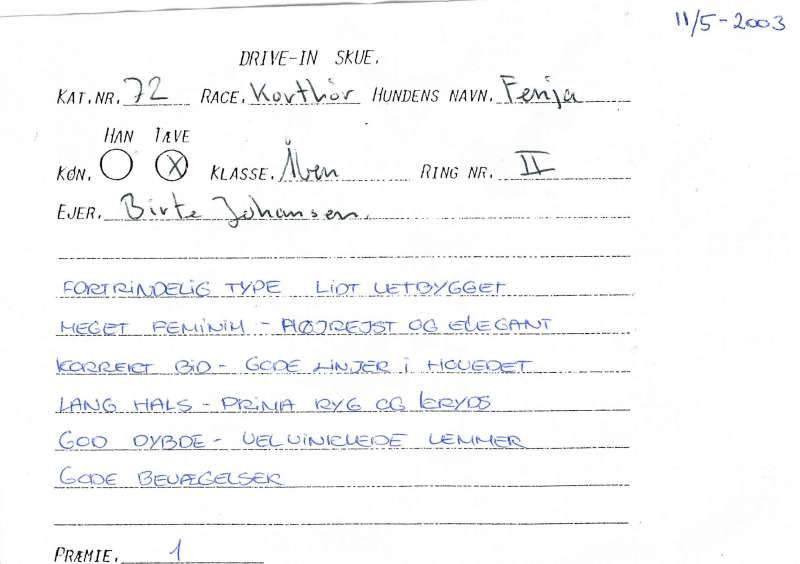 11/5-2003
DRIVE-IN SKUE.
KAT.NR. 72 RACE. Korthår HUNDENS NAVN. Fenja
HAN TÆVE
KØN. X KLASSE. Åben RING NR. II
EJER. Birte Johansen.
FORTRINDELIG TYPE LIDT LETBYGGET
MEGET FEMINIM - HØJREJST OG ELEGANT
KORREKT BID - GODE LINJER i HOVEDET
LANG HALS - PRIMA RYG OG KRYDS
GOD DYBDE - VELVINKLEDE LEMMER
GODE BEVÆGELSER
PRÆMIE. 1